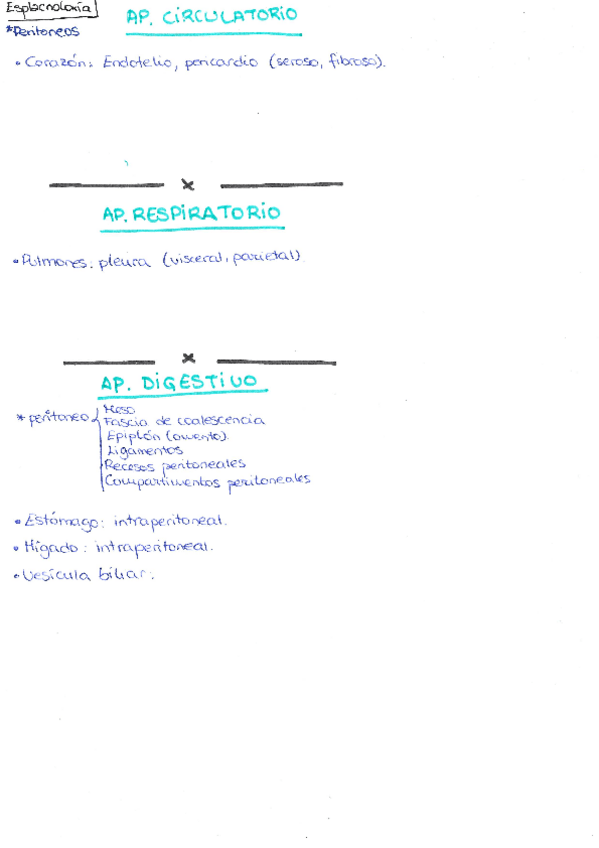 Esplacnoloxía
AP. CIRCULATORIO
*Peritoneos
• Corazón: Endotelio, pericardio (seroso, fibroso).
x
AP. RESPIRATORIO
• Pulmones: pleura (visceral, parietal)
x
AP. DIGESTIVO
* peritoneo { Meso
Fascia de coalescencia
Epiplón (omento)
Ligamentos
Recesos peritoneales
Compartimentos peritoneales
• Estómago: intraperitoneal.
• Hígado: intraperitoneal.
• Vesícula biliar: